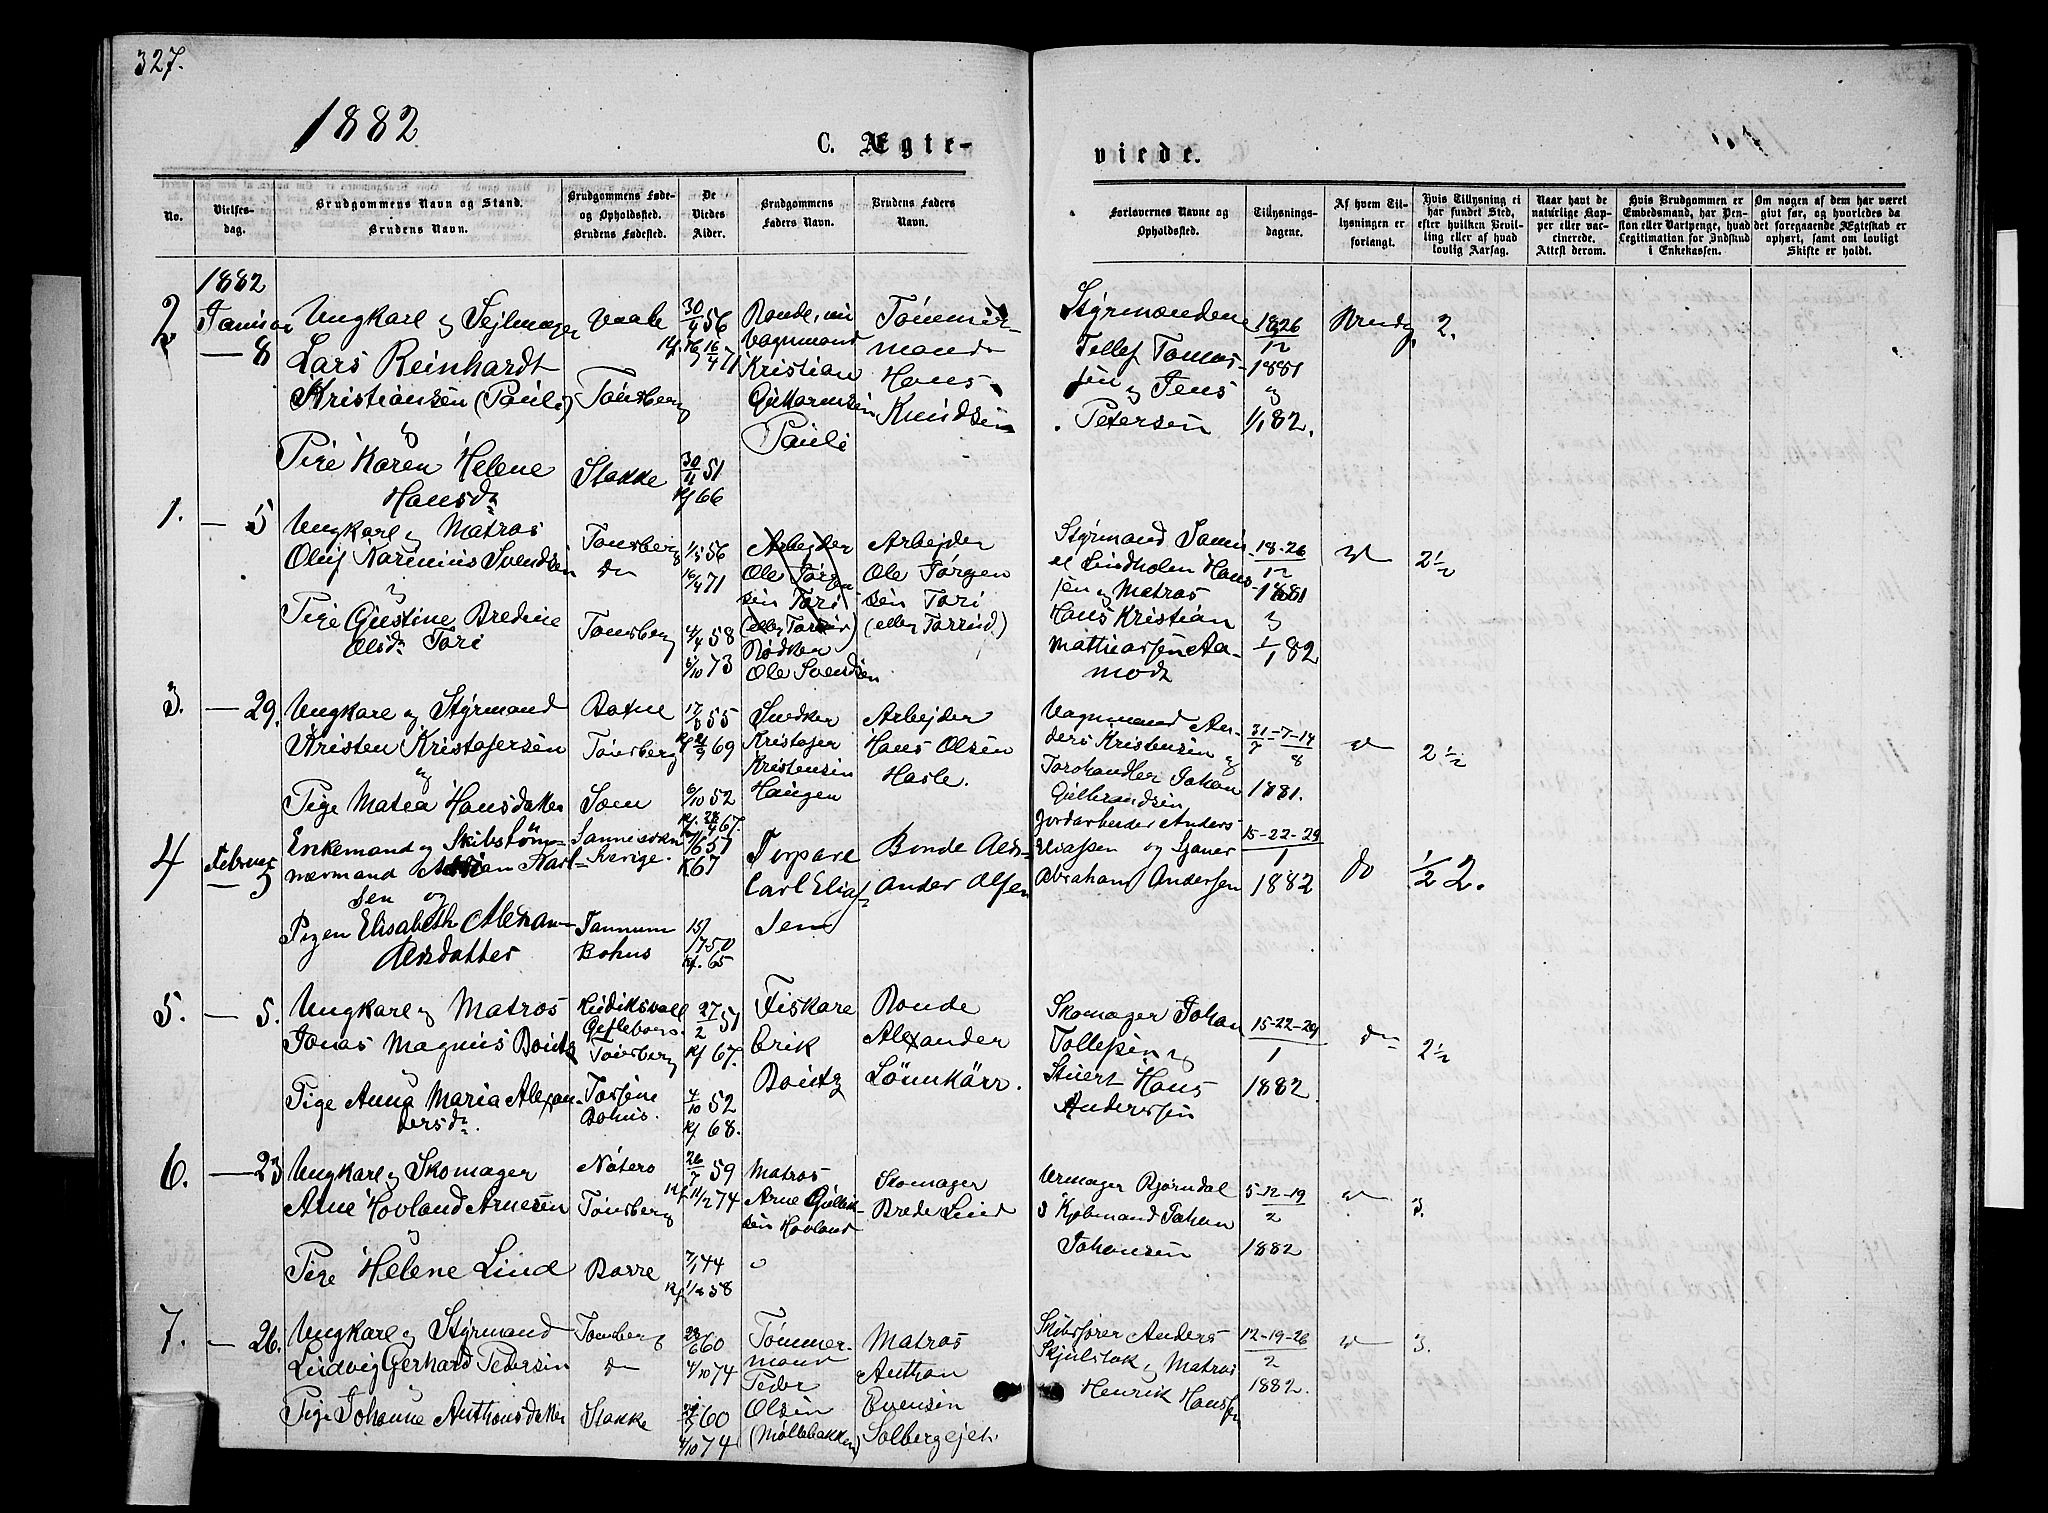 327.
1882
C. Ægte-
viede.
No.
Vielses-
dag.
Brudgommens Navn og Stand.
Brudens Navn.
Brudgommens Føde-
og Opholdssted.
Brudens Fødested.
De
Viedes
Alder.
Brudgommens
Faders Navn.
Brudens Faders
Navn.
Forlovernes Navne og
Opholdssted.
Tillysnings-
dagene.
Af hvem Til-
lysningen er
forlangt.
Hvis Tillysning ei
har fundet Sted,
efter hvilken Bevil-
ling eller af hvad
lovlig Aarsag.
Naar havt de
naturlige Kop-
per eller vac-
cinerede.
Attest derom.
Hvis Brudgommen er
Embedsmand, har Pen-
sion eller Vartpenge, hvad
Legitimation for Indskud
i Enkekassen.
Om nogen af dem har været
givt før, og hvorledes da
det foregaaende Ægteskab er
ophørt, samt om lovligt
Skifte er holdt.
1882
2
Januar
— 8
Ungkarl og Sejlmager
Lars Reinhardt
Kristiansen (Pauli)
og
Pige Karen Helene
Hansdr
Vaale
Tønsberg
Stokke
30/4 56
Kf. 16/4 71
30/11 51
Kf 66
Bonde,
Vognmand
Kristian
Pauli
Tømmer-
mand
Hans
Knudsen
Styrmændene
Tollef Tomas-
sen og Jens
Petersen
18 26
12
1881
og
1/1 82.
Brudg.
2.
1.
— 5
Ungkarl og Matros
Oluf Narinius Svendsen
og
Pige Gustine Bredine
Olsdr Tori
Tønsberg
do
Tønsberg
1/5 56
16/4 71
4/4 58
5/10 73
Arbejder
Ole Jørgen
sen Tori
Rødken
Ole Svendsen
Arbejder
Ole Jørgen
sen Tori
(eller Torrud)
Styrmand Sam-
el Lindholm Hans-
sen og Matros
Hans Kristian
Mathiassen Aa-
modt
18-26
12
1881
og
1/1 82
do
2½
3.
— 29.
Ungkarl og Styrmand
Kristen Kristofersen
og
Pige Matea Hansdatter
Botne
Tønsberg
Sem
17/3 55
Kf 21/9 69
6/10 52
Kf. 67.
Snedker
Kristofer
Kristensen
Haugen
Arbejder
Hans Olsen
Hasle.
Vognmand An-
ders Kristensen og
Johan
Gulbrandsen
31-7-14
7 8
1881.
do
2½
4
Februar
— 5
Enkemand og Skibstøm-
mermand Karl-
sen og
Pigen Elisabeth Alexan-
dersdatter
Sannesokn
Sverige.
Tannum
Bohus
51
K67
50
Kf. 65
Torpare
Carl Elias
sen
Bonde Alex-
ander Olsen
Jordarbeider Anders
Eliassen og Sjauer
Abraham Andersen
15-22-29
1
1882
do
½2.
5.
— 5.
Ungkarl og Matros
Jonas Magnus Boutz
og
Pige Anna Maria Alexan-
dersdr.
Hudiksvall
Gefleborg.
Tønsberg
Bohus.
27/2 51
Kf 67.
4/10 52
Kf. 68.
Fiskare
Erik
Boutz
Bonde
Alexander
Lönnkärr.
Skomager Johan
Tollefsen og
Stuert Hans
Anderssen
15-22-29
1
1882.
do
2½
6.
— 23
Ungkarl og Skomager
Arne Hovland Arnesen
og
Pige Helene Lind
Nøterø
Tønsberg
Borre
26/7 59
Kf. 74
7/1 44
Kf 58
Matros
Arne Gullik-
sen Hovland
Skomager
Brede Lind
Urmager Bjørndal
& Kjøbmand Johan
Johansen
5-12-19
2
1882
do
3.
7.
— 26.
Ungkarl og Styrmand
Ludvig Gerhard Petersen
og
Pige Johanne Anthonsdatter
Tønsberg
do
Stokke
60
4/10 74
60
4/10 74
Tømmer-
mand
Peder
Olsen
(Møllebakken)
Matros
Anthon
Evensen
Solbergejet.
Skibsfører Anders
Skjulstok, Matros
Henrik Hansen
12-19-26
2
1882.
do
3.